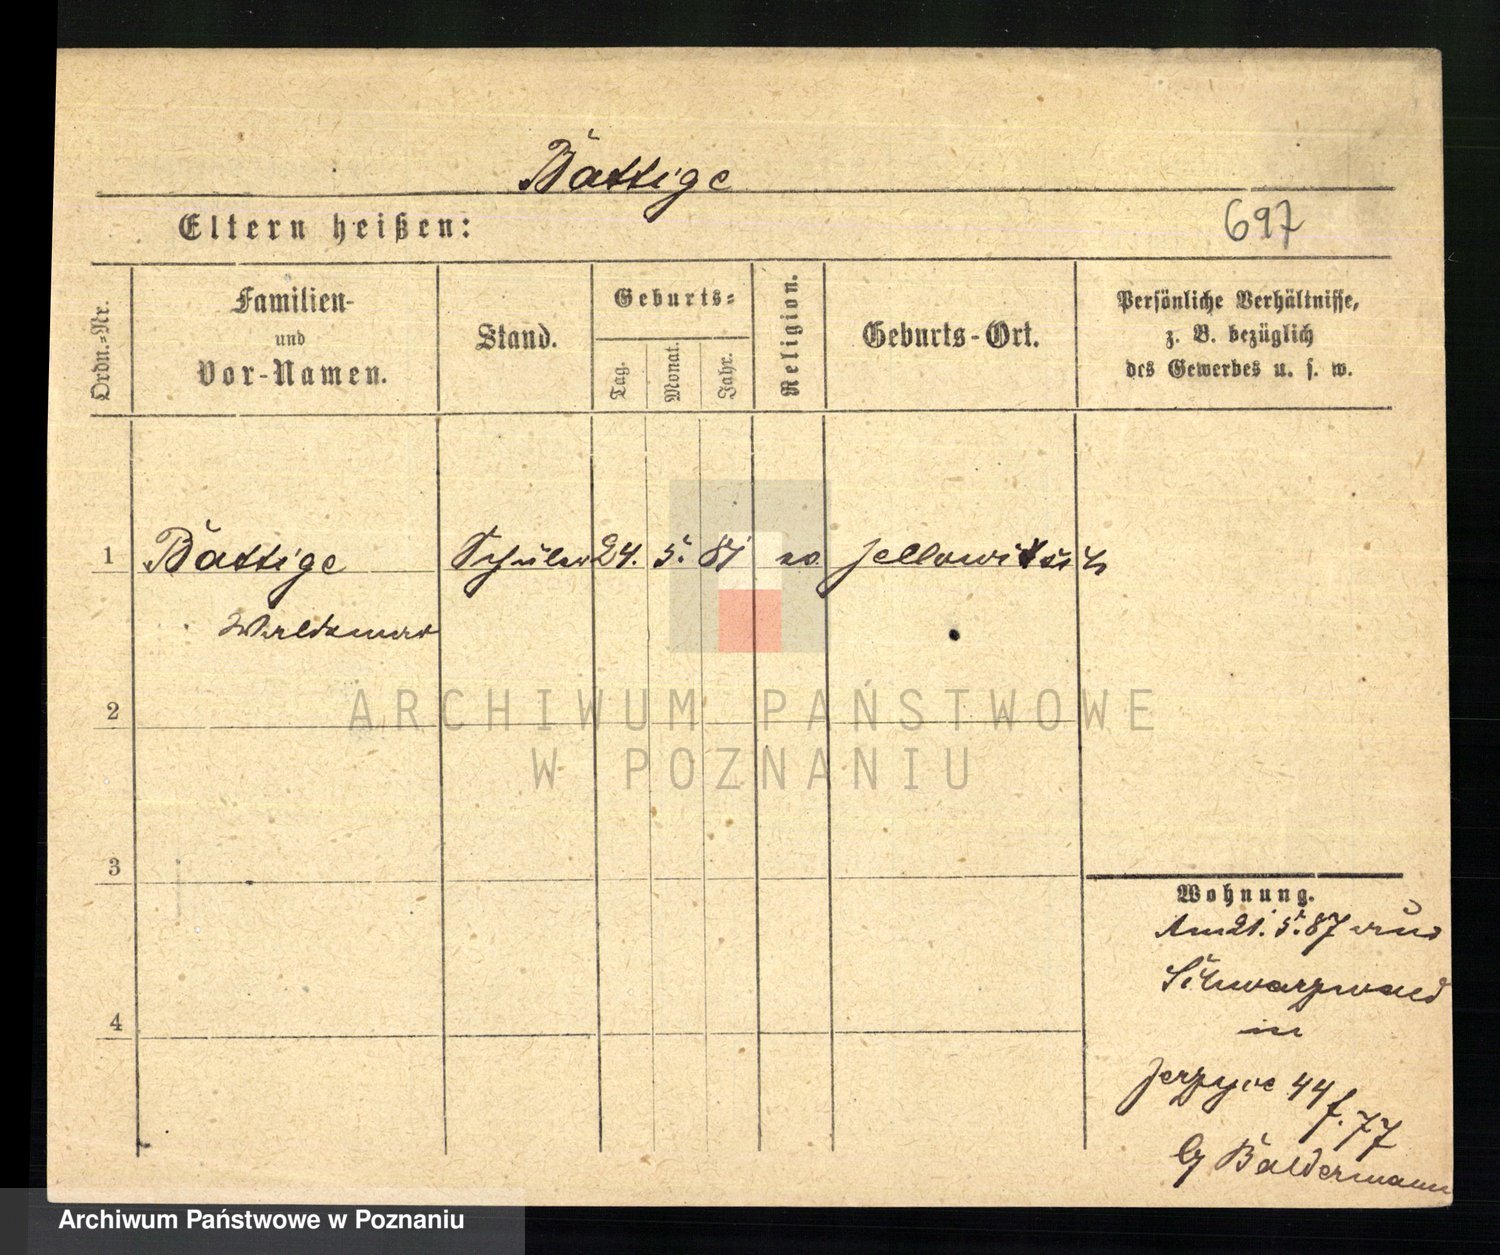 Battige
697
Eltern heißen:
Ordn.-Nr.
Familien-
und
Vor-Namen.
Stand.
Geburts-
Tag.
Monat.
Jahr.
Religion.
Geburts-Ort.
Persönliche Verhältnisse,
z. B. bezüglich
des Gewerbes u. s. w.
1
Battige
Schüler
24.
5.
81
Waldemar
2
3
4
Wohnung.
Am 21. 5. 87 aus
Schwarzwald
in
44
f. 77
Baldermann
ARCHIWUM PAŃSTWOWE
W POZNANIU
Archiwum Państwowe w Poznaniu